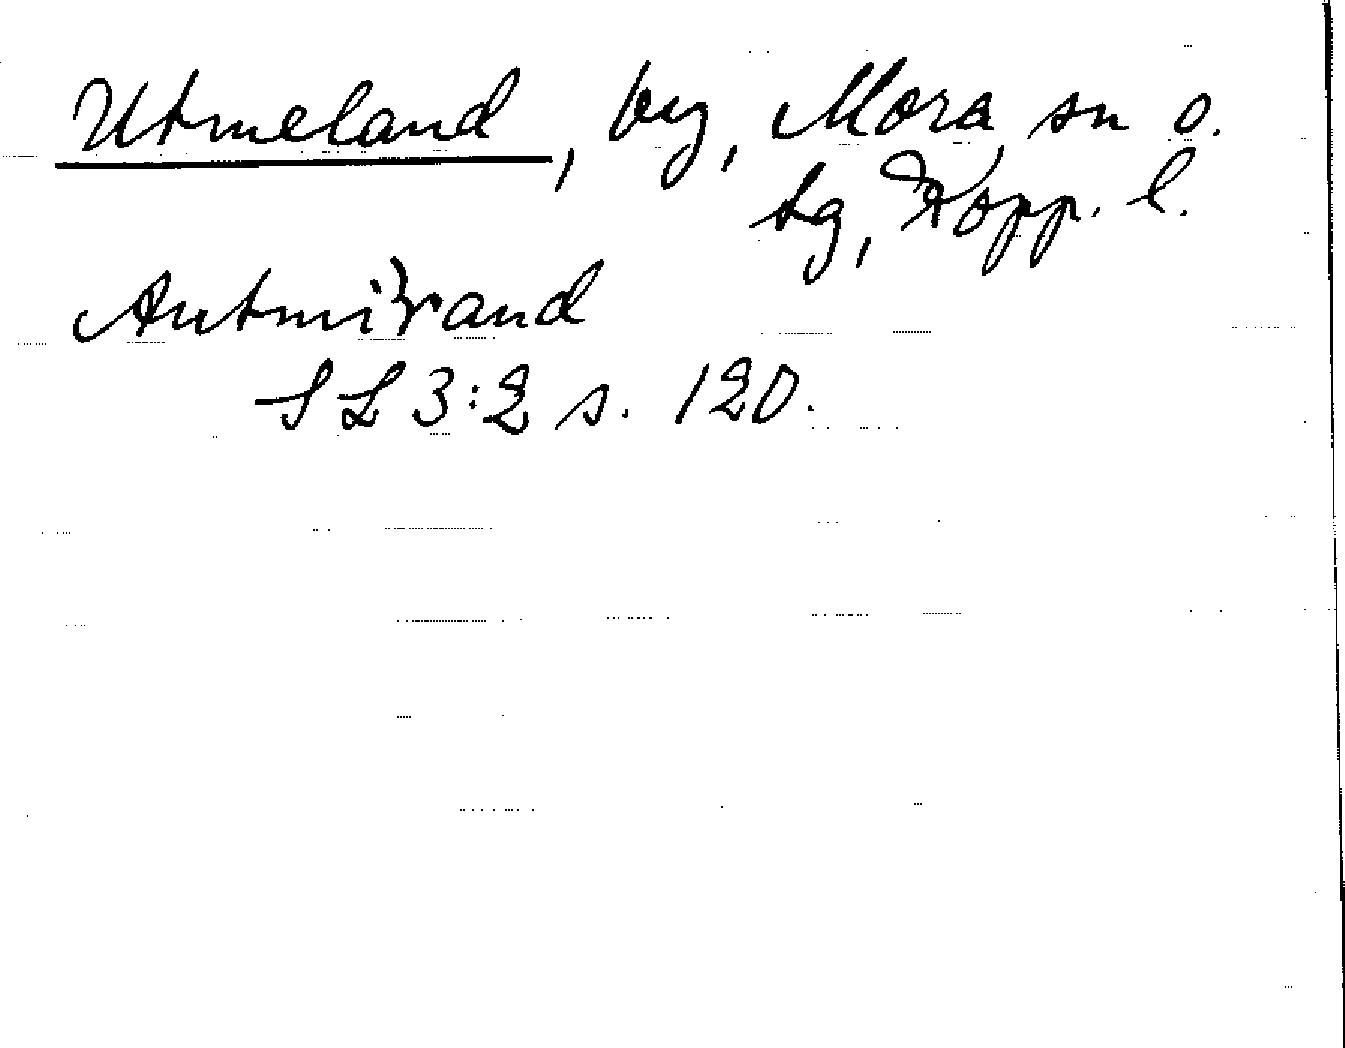 Utmeland, by, Mora sn o.
tg, Kopp. l.
SL 3:2 s. 120.